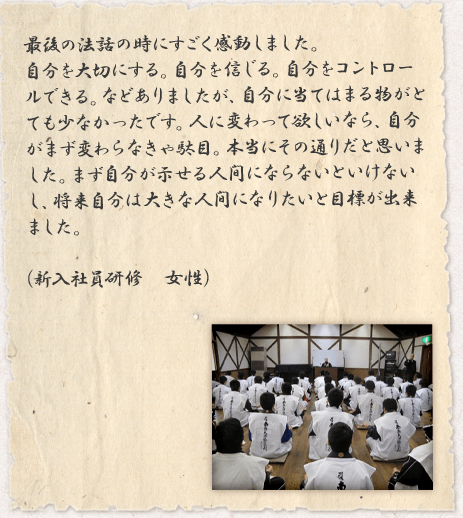 最後の法話の時にすごく感動しました。
自分を大切にする。自分を信じる。自分をコントロー
ルできる。などありましたが、自分に当てはまる物がと
ても少なかったです。人に変わって欲しいなら、自分
がまず変わらなきゃ駄目。本当にその通りだと思いま
した。まず自分が示せる人間にならないといけない
し、将来自分は大きな人間になりたいと目標が出来
ました。
(新入社員研修 女性)